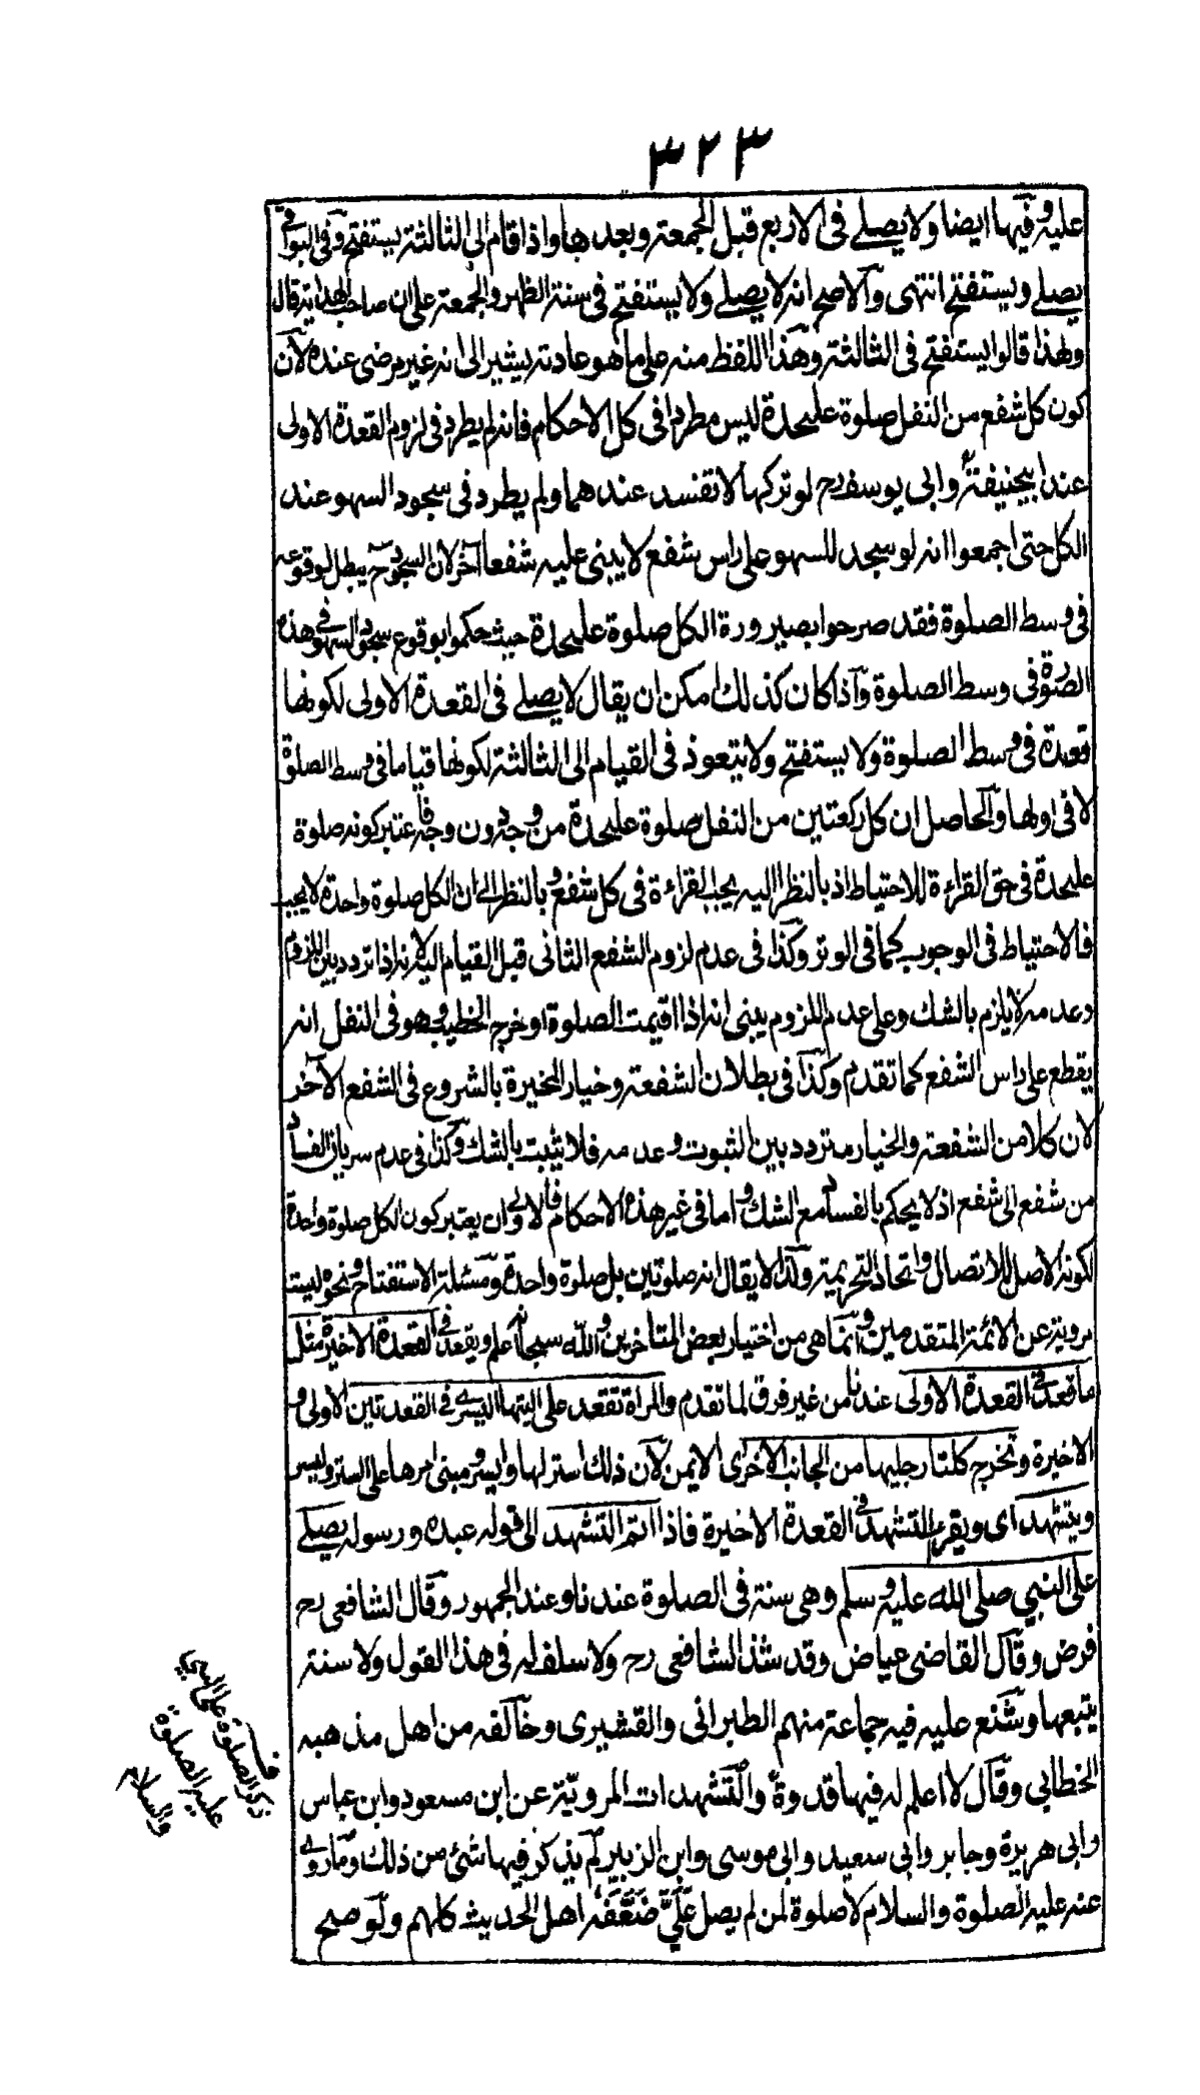 ٣٢٣
عليه وفيها ايضا ولا يصلى فى الاربع قبل الجمعة وبعدها واذا قام الى الثالثة يستفتح وفى البواقى
يصلى ويستفتح انتهى والاصح انه لا يصلى ولا يستفتح فى سنة الظهر والجمعة على ان صاحب الهداية قال
ولهذا قالوا يستفتح فى الثالثة وهذا اللفظ منه على ما هو عادته يشير الى انه غير مرضى عنده لان
كون كل شفع من النفل صلوة عليحدة ليس مطردا فى كل الاحكام فانه لم يطرد فى لزوم القعدة الاولى
عند ابيحنيفةؒ وابى يوسف رح لو تركها لا تفسد عندهما ولم يطرد فى سجود السهو عند
الكل حتى اجمعوا انه لو سجد للسهو على راس شفع لا يبنى عليه شفعا آخر لان السجود ح يبطل لوقوعه
فى وسط الصلوة فقد صرحوا بصيرورة الكل صلوة عليحدة حيث حكموا بوقوع سجود السهو فى هذه
الصورة فى وسط الصلوة واذا كان كذلك امكن ان يقال لا يصلى فى القعدة الاولى لكونها
قعدة فى وسط الصلوة ولا يستفتح ولا يتعوذ فى القيام الى الثالثة لكونها قياما فى وسط الصلوة
لا فى اولها والحاصل ان كل ركعتين من النفل صلوة عليحدة من وجه دون وجه فاعتبر كونه صلوة
عليحدة فى حق القراءة للاحتياط اذ بالنظر اليه يجب القراءة فى كل شفع وبالنظر الى ان الكل صلوة واحدة لا يجب
فالاحتياط فى الوجوب كما فى الوتر وكذا فى عدم لزوم الشفع الثانى قبل القيام اليه لانه اذا تردد بين اللزوم
وعدمه لا يلزم بالشك وعلى عدم اللزوم يبنى انه اذا اقيمت الصلوة او خرج الخطيب وهو فى النفل انه
يقطع على راس الشفع كما تقدم وكذا فى بطلان الشفعة وخيار المخيرة بالشروع فى الشفع الآخر
لان كلا من الشفعة والخيار متردد بين الثبوت وعدمه فلا يثبت بالشك وكذا فى عدم سريان الفساد
من شفع الى شفع اذ لا يحكم بالفساد مع الشك واما فى غير هذه الاحكام فالاولى ان يعتبر كون الكل صلوة واحدة
لكونه الاصل للاتصال واتحاد التحريمة ولذا لا يقال انه صلوتين بل صلوة واحدة ومسئلة الاستفتاح ونحوه ليست
مروية عن الائمة المتقدمين وانما هى من اختيار بعض المتاخرين والله سبحانه اعلم ويقعد فى القعدة الاخيرة مثل
ما قعد فى القعدة الاولى عندنا من غير فرق لما تقدم والمراة تقعد على اليتها اليسرى فى القعدتين الاولى و
الاخيرة وتخرج كلتا رجليها من الجانب الاخرى الايمن لان ذلك استر لها وايسر ومبنى امرها على الستر واليسر
ويتشهد اى ويقرء التشهد فى القعدة الاخيرة فاذا اتم التشهد الى قوله عبده ورسوله يصلى
على النبي صلى الله عليه وسلم وهى سنة فى الصلوة عندنا وعند الجمهور وقال الشافعى رح
فرض وقال القاضى عياض وقد شذ الشافعى رح ولا سلف له فى هذا القول ولا سنة
يتبعها وشنع عليه فيه جماعة منهم الطبرانى والقشيرى وخالفه من اهل مذهبه
الخطابى وقال لا اعلم له فيها قدوة والتشهدات المروية عن ابن مسعود وابن عباس
وابى هريرة وجابر وابى سعيد وابى موسى وابن الزبير لم يذكر فيها شئ من ذلك وما روى
عنه عليه الصلوة والسلام لا صلوة لمن لم يصل عَلَيَّ ضَعَّفَهُ اهل الحديث كلهم ولو صح
ذكر الصلوة على النبي
عليه الصلوة
والسلام